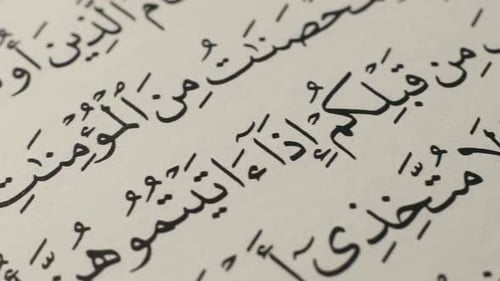 الَّذِينَ أُو
حْصَنَٰتُ مِنَ الْمُؤْمِنَٰتِ
مِن قَبْلِكُمْ إِذَا ءَاتَيْتُمُوهُنَّ
مُتَّخِذِىٓ أَ